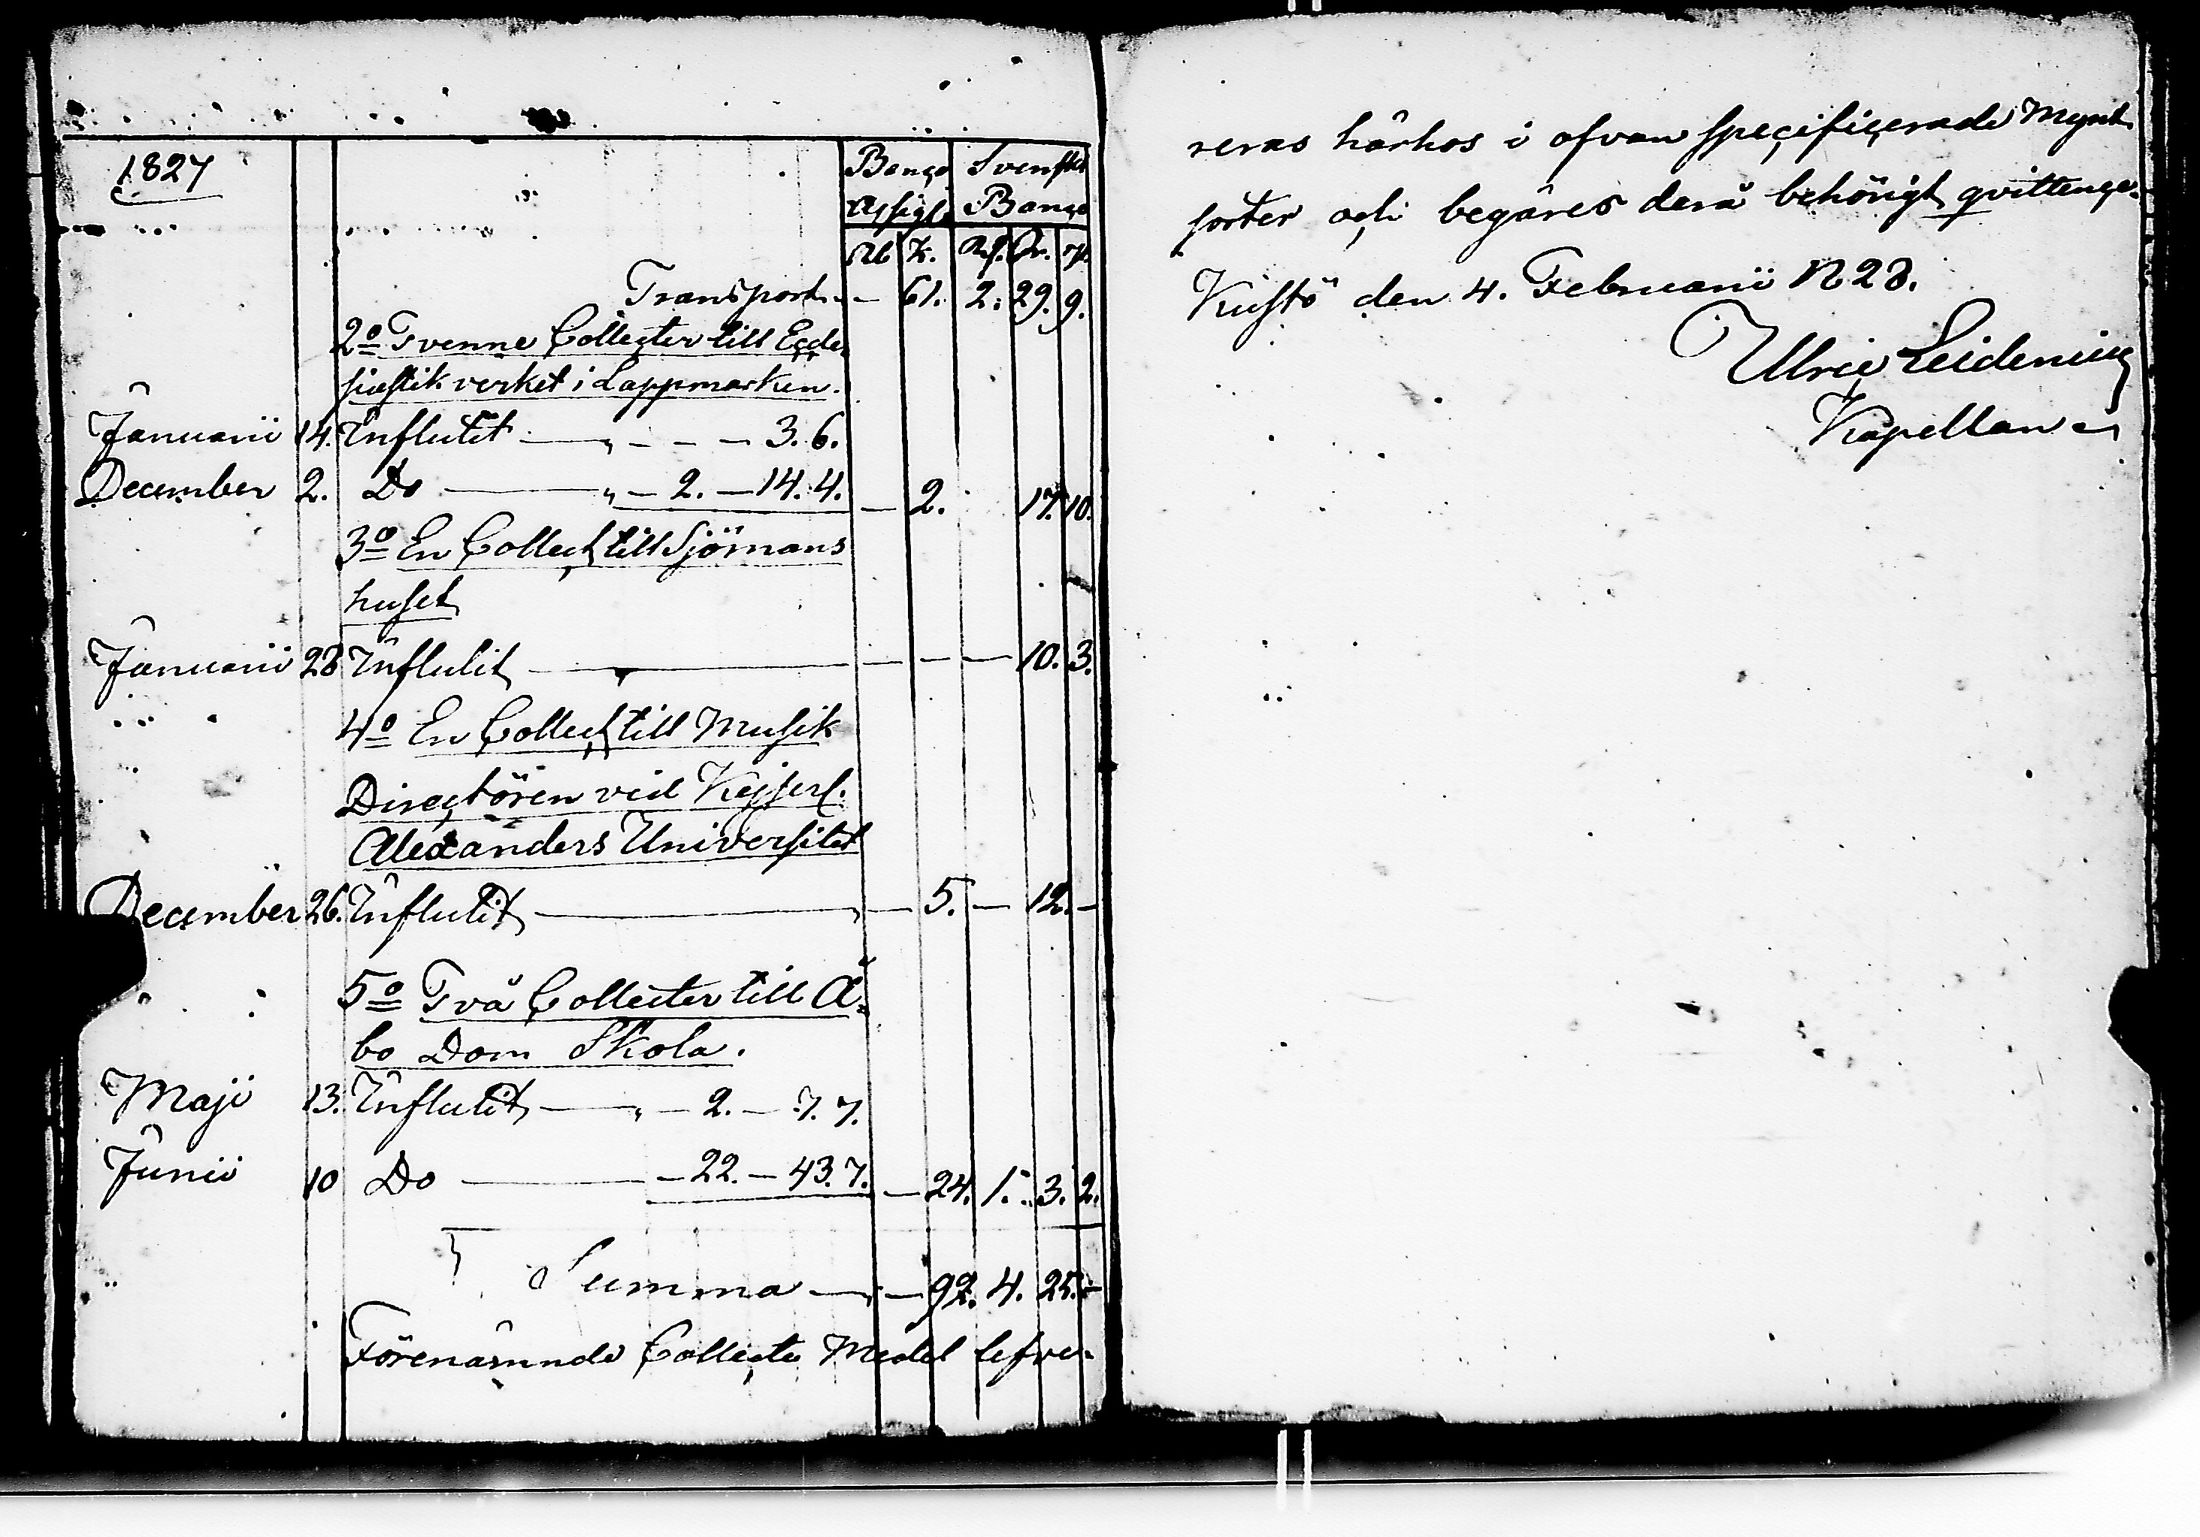 1827 Banco Svenskt
Assign. Banco
Rb K. Rd. sk. r.
Transport — 61. 2. 29. 9.
2o Tvenne Collecter till Eccle-
siastik verket i Lappmarken.
Januarii 14. Influtit — „ — — — 3. 6.
December 2. Do — „ — 2. — 14. 4. — 2. 17. 10.
3o En Collect till Sjömans
huset
Januarii 28 Influtit — — — — 10. 3.
4o En Collect till Musik
Directören vid Kejserl.
Alexanders Universitet
December 26. Influtit — — 5. — 12. —
5o Två Collecter till Å-
bo Dom Skola.
Maji 13. Influtit — „ — 2. — 7. 7.
Junii 10 Do — — 22. — 43. 7. — 24. 1. 3. 2.
Summa — — 92. 4. 25. —
Förenämnde Collecte Medel lefve-
reras härhos i ofvan specificerade Mynt
sorter och begäres derå behörigt qvittence.
Kustö den 4. Februarii 1828.
Ulric Leidenius
Kapellan